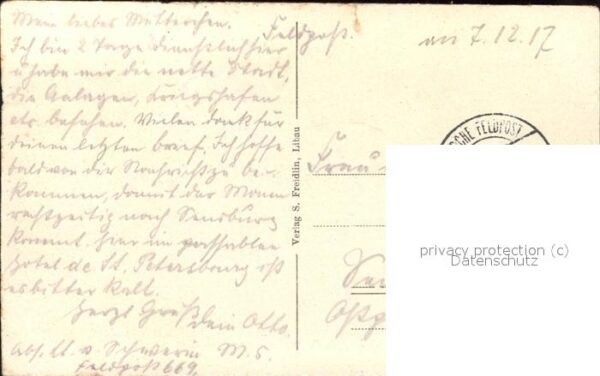 Mein liebes Mutterchen.
Ich bin 2 Tage dienstlich hier
u. habe mir die nette Stadt,
die Anlagen, Kriegshafen
etc. besehen. Vielen dank für
deinen letzten brief. Ich hoffe
bald von dir Nachricht zu be-
kommen, damit der Mann
rechtzeitig nach Sensburg
kommt. Hier im
Hotel de St. Petersbourg ist
es bitter kalt.
Herzl Gruß
dein Otto.
Abs. Lt. v. Schwerin M. S.
Feldpost 669.
Verlag S. Freidlin, Libau
Feldpost.
7.12.17
SCHE FELDPOST
Frau
Se
Ostp
privacy protection (c)
Datenschutz